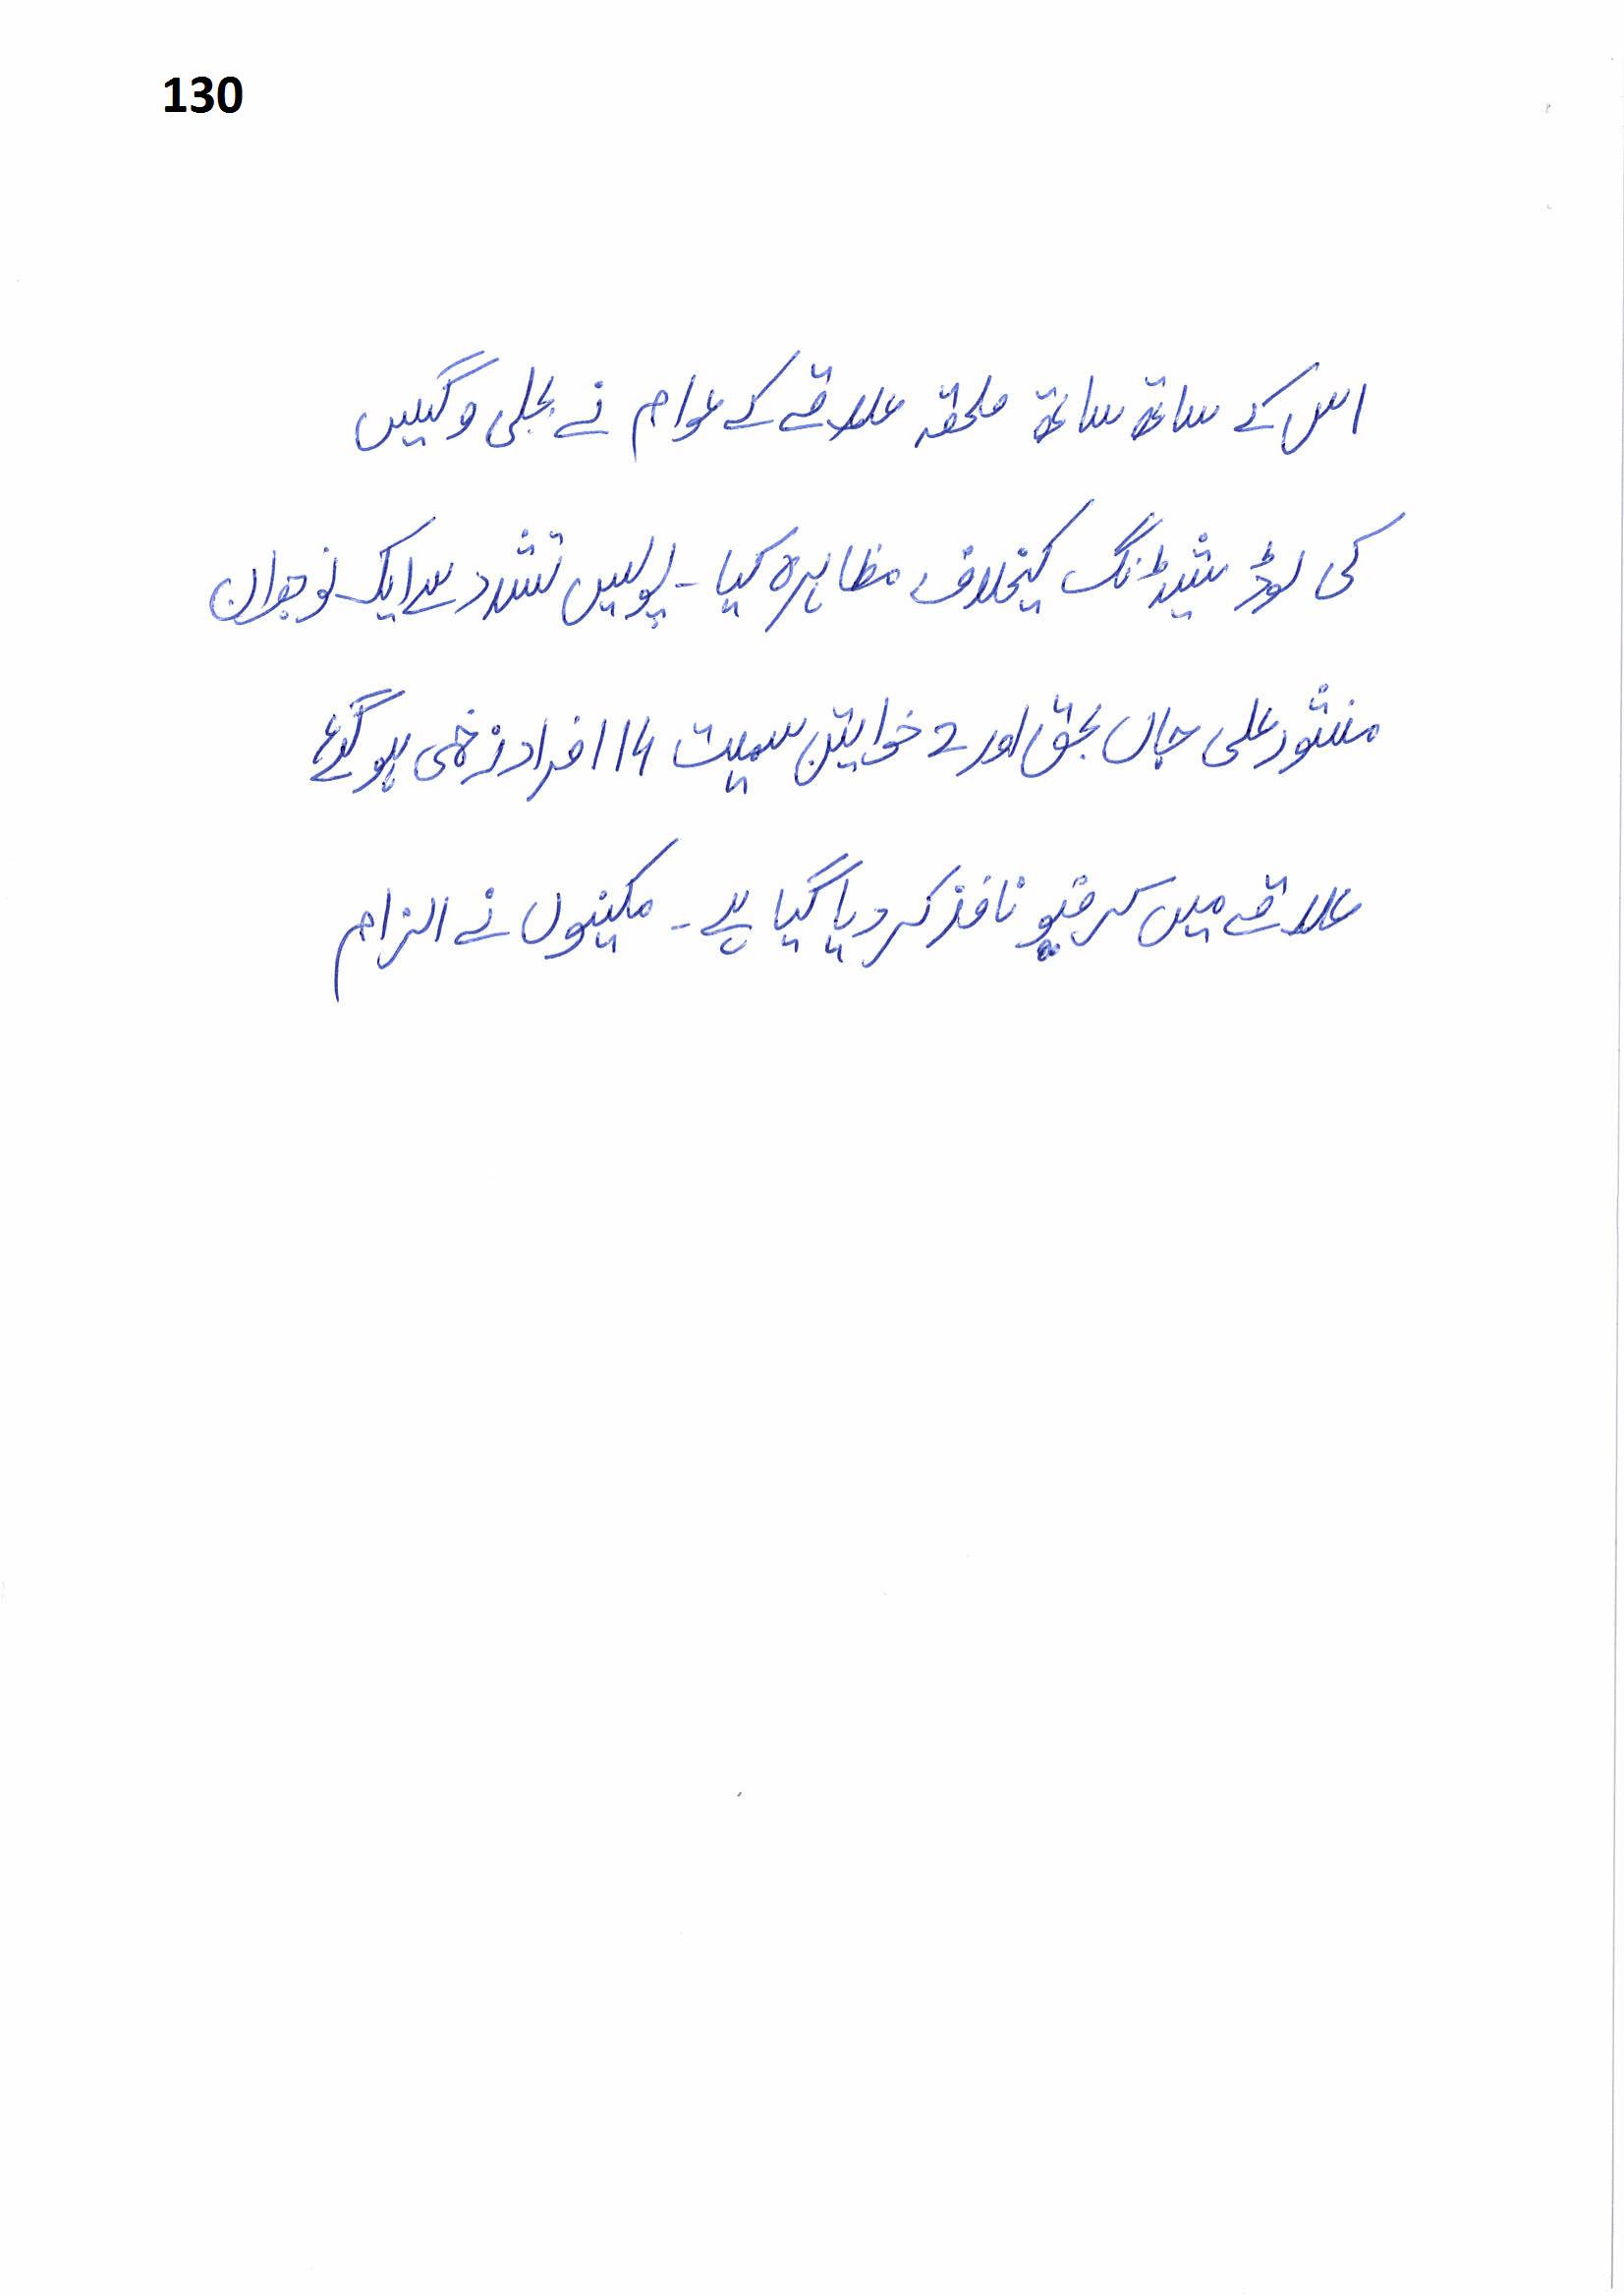 130
اس کے ساتھ ساتھ ملحقہ علاقے کے عوام نے بجلی و گیس
کی لوڈ شیڈنگ کیخلاف مظاہرہ کیا ۔ پولیس تشدد سے ایک نوجوان
منشور علی جاں بحق اور 2 خواتین سمیت 14 افراد زخمی ہو گئے
علاقے میں کرفیو نافذ کر دیا گیا ہے ۔ مکینوں نے الزام